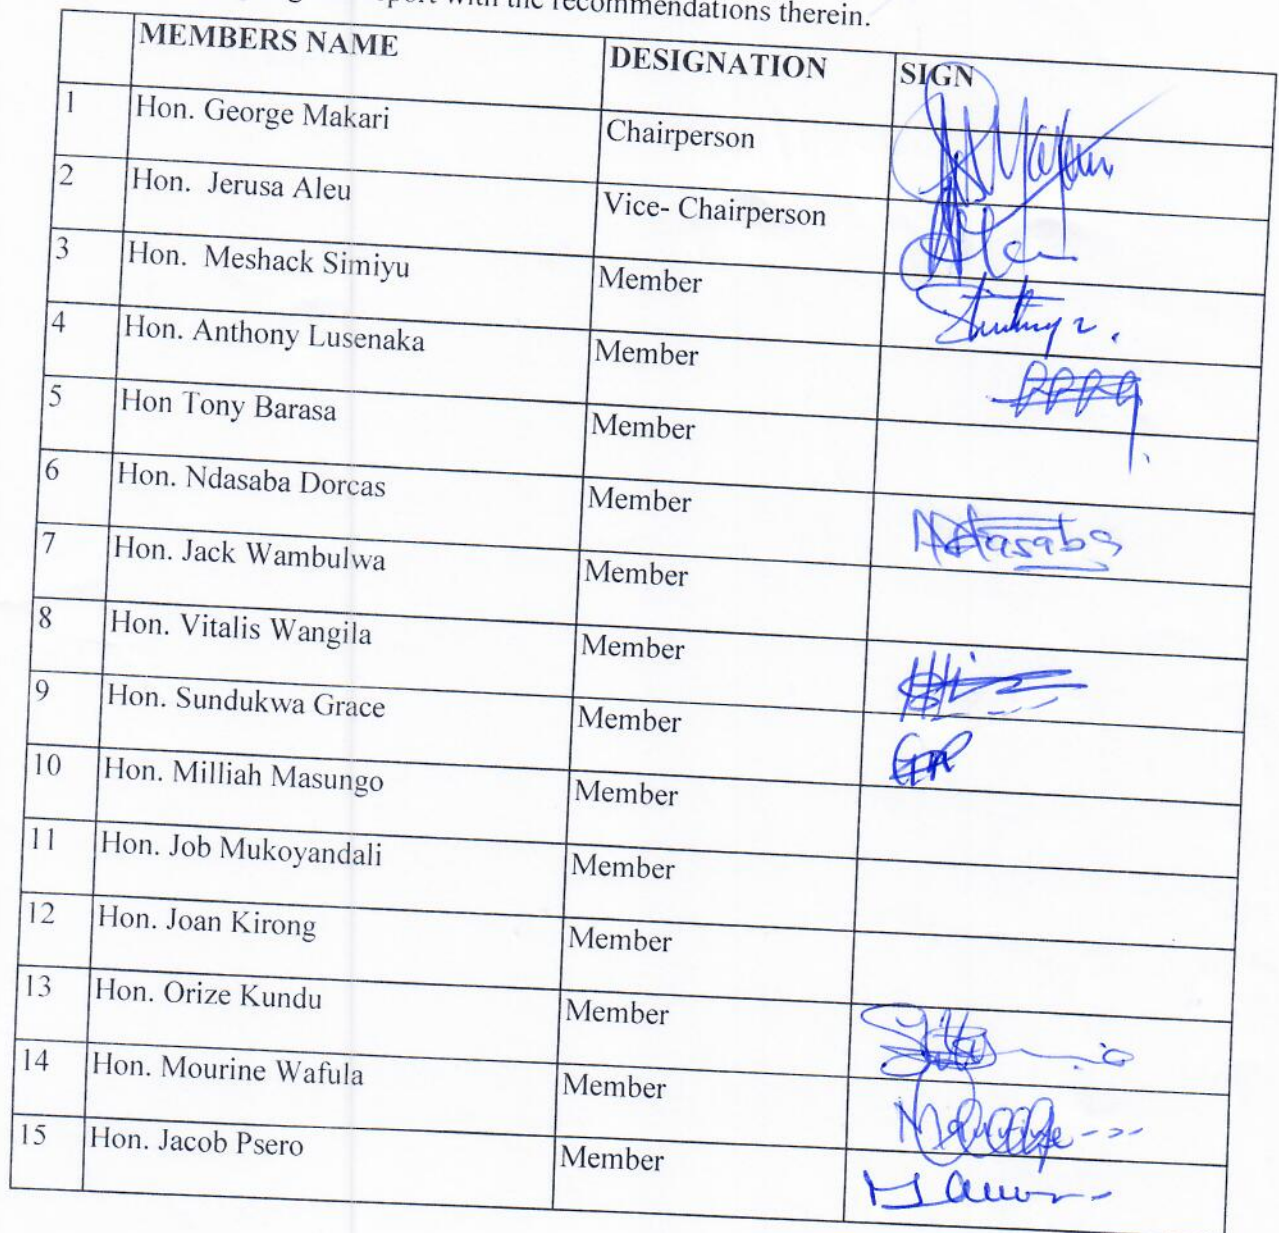 with the recommendations therein.
MEMBERS NAME DESIGNATION SIGN
1 Hon. George Makari Chairperson
2 Hon. Jerusa Aleu Vice- Chairperson
3 Hon. Meshack Simiyu Member
4 Hon. Anthony Lusenaka Member
5 Hon Tony Barasa Member
6 Hon. Ndasaba Dorcas Member Ndasaba
7 Hon. Jack Wambulwa Member
8 Hon. Vitalis Wangila Member
9 Hon. Sundukwa Grace Member
10 Hon. Milliah Masungo Member
11 Hon. Job Mukoyandali Member
12 Hon. Joan Kirong Member
13 Hon. Orize Kundu Member
14 Hon. Mourine Wafula Member
15 Hon. Jacob Psero Member